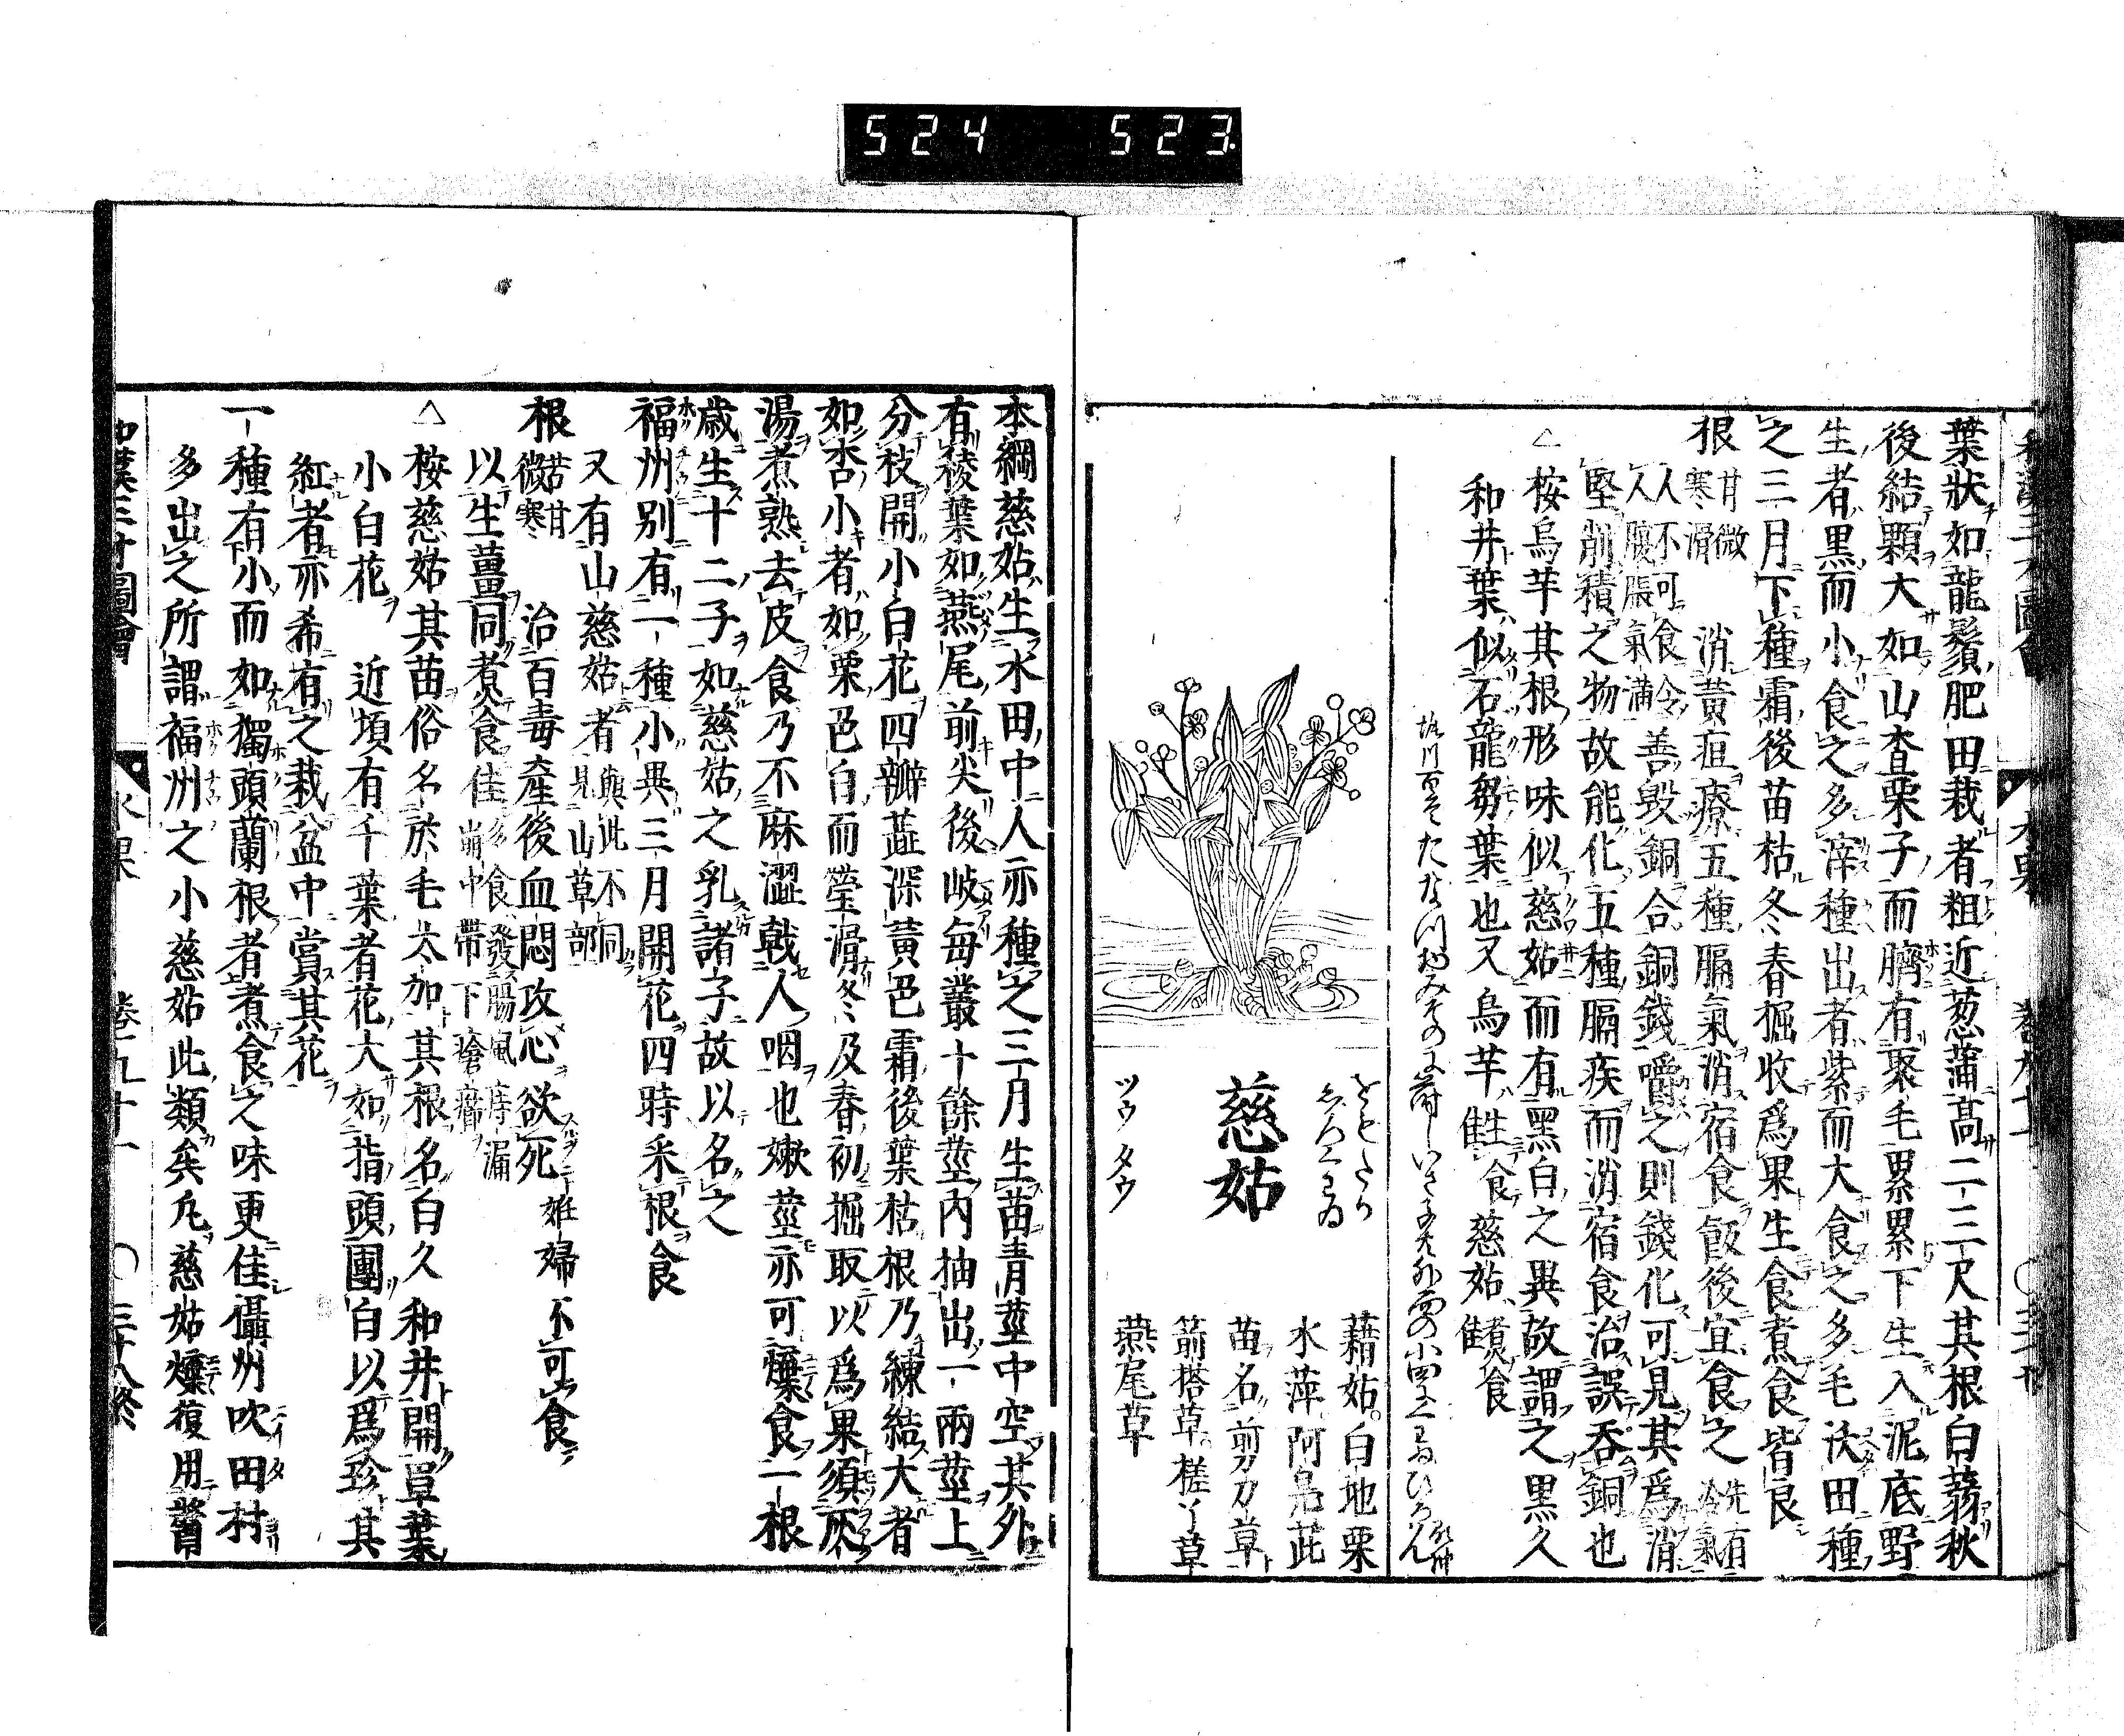 524 523
葉狀如龍鬚肥田栽者粗近葱蒲高二三尺其根白蒻秋
後結顆大如山査栗子而臍有聚毛累累下生入泥底野
生者黒而小食之多滓種出者紫而大食之多毛沃田種
之三月下種霜後苗枯冬春掘收爲果生食煮食皆良
根 甘微寒滑 消黃疸療五種膈氣消宿食飯後宜食之 先有冷氣
人不可食令人腹脹氣滿 善毀銅合銅錢嚼之則錢化可見其爲消
堅削積之物故能化五種膈疾而消宿食治誤呑銅也
△ 桉烏芋其根形味似慈姑而有黑白之異故謂之黒久
和井葉似石龍芻葉也又烏芋隹生食慈姑隹煑食
慈姑
ツウ タウ
藉姑。白地栗
水萍 河鳧茈
苗名 剪刀草
箭搭草。槎丫草
燕尾草
本綱慈姑生水田中人亦種之三月生苗青莖中空其外
有稜葉如燕尾前尖後岐每叢十餘莖內抽出一兩莖上
分枝開小白花四瓣蕋深黃色霜後葉枯根乃練結大者
如杏小者如栗色白而瑩滑冬及春初掘取以爲果須灰
湯煮熟去皮食乃不麻澀戟人咽也嫩莖亦可煠食一根
歳生十二子如慈姑之乳諸子故以名之
福州别有一種小異三月開花四時采根食
又有山慈姑者 與此不同見山草部
根 苦甘微寒 治百毒產後血悶攻心欲死 姙婦不可食
以生薑同煮食佳 多食發腸風痔漏崩中帶下瘡癤
△ 桉慈姑其苗俗名於毛太加其根名白久和井開單葉
小白花 近頃有千葉者花大如指頭團白以爲珍其
紅者亦希有之栽盆中賞其花
一種有小而如獨頭蘭根者煮食之味更佳攝州吹田村
多出之所謂福州之小慈姑此類矣凢慈姑煠復用醬
和漢三才圖會 水果 卷九十一 〇 三十八終